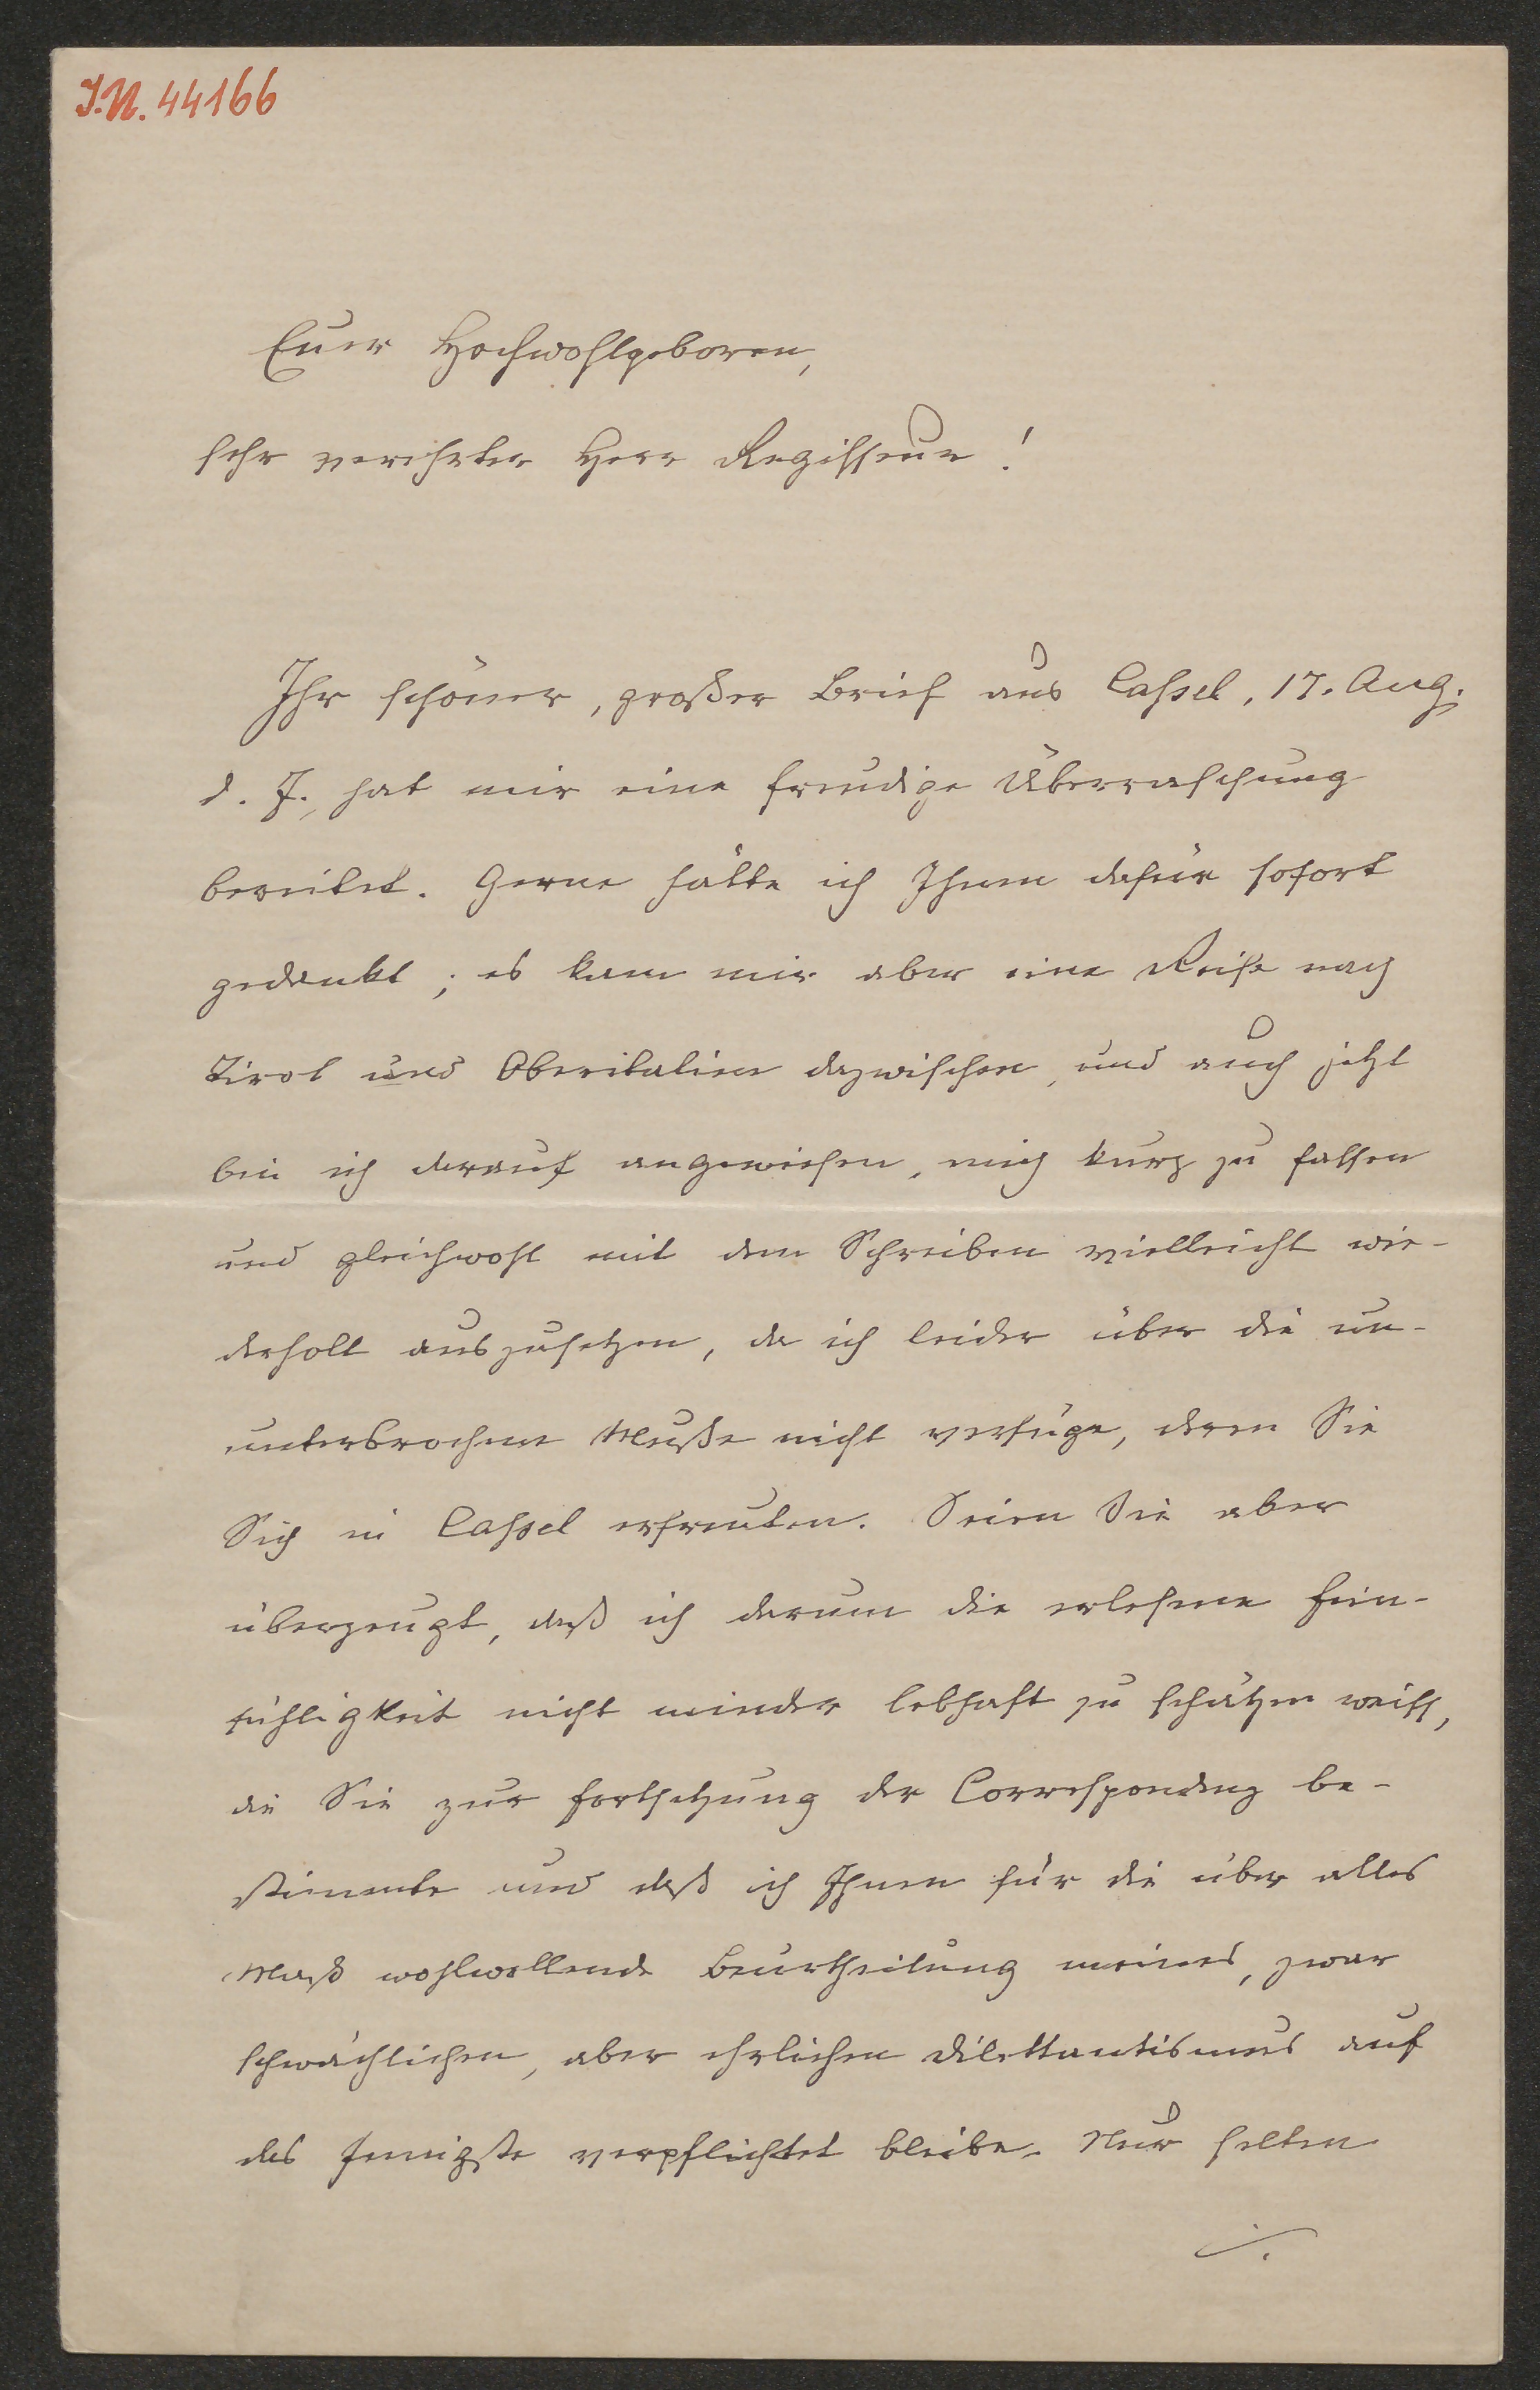 I.N. 44166
Euer Hochwohlgeboren,
sehr verehrter Herr Regisseur!
Ihr schöner, großer Brief aus Cassel, 17. Aug.
d. J., hat mir eine freudige Überraschung
bereitet. Gerne hätte ich Ihnen dafür sofort
gedankt; es kam mir aber eine Reise nach
Tirol und Oberitalien dazwischen, und auch jetzt
bin ich darauf angewiesen, mich kurz zu fassen
und gleichwohl mit dem Schreiben vielleicht wie-
derholt auszusetzen, da ich leider über die un-
unterbrochene Muße nicht verfüge, deren Sie
Sich in Cassel erfreuten. Seien Sie aber
überzeugt, daß ich darum die erlesene Fein-
fühligkeit nicht minder lebhaft zu schätzen weiss,
die Sie zur Fortsetzung der Correspondenz be-
stimmte und daß ich Ihnen für die über alles
Maß wohlwollende Beurtheilung meines, zwar
schwächlichen, aber ehrlichen Dilettantismus auf
das Innigste verpflichtet bleibe. Nur selten
./.